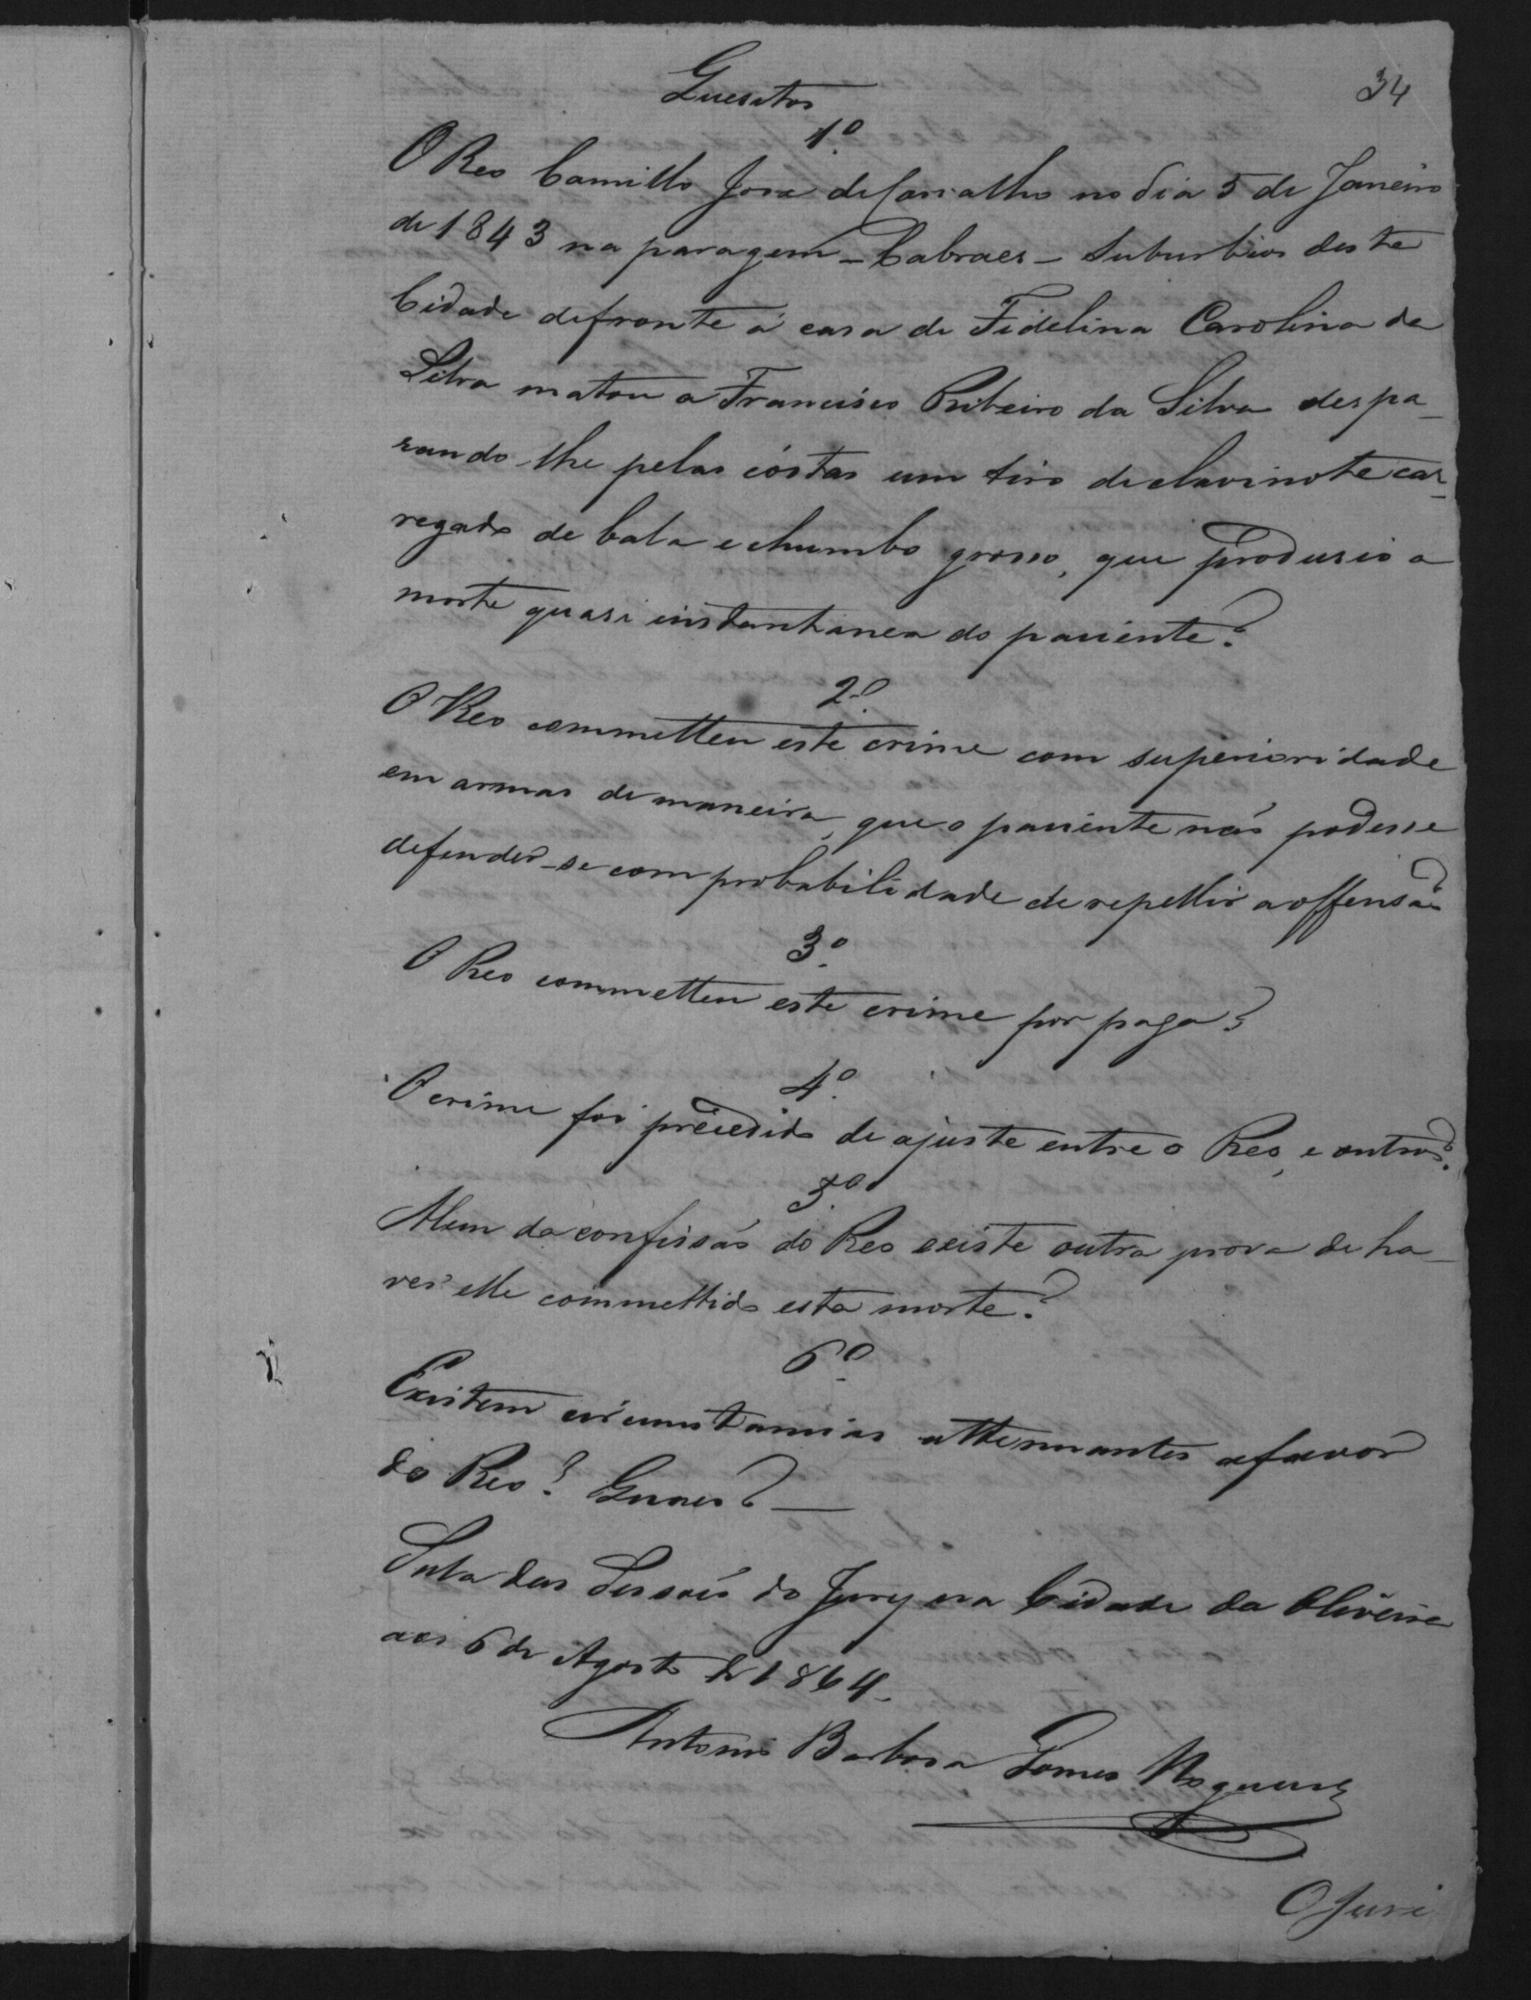 34
Quesitos
1º
O Reo Camillo José de Carvalho no dia 5 de Janeiro
de 1843 na paragem - Cabraes - suburbios desta
Cidade defronte á casa de Fidelina Carolina da
Silva matou a Francisco Ribeiro da Silva despa-
rando-lhe pelas cóstas um tiro de clavinote car-
regado de bala e chumbo grosso, que produsio a
morte quasi instantanea do paciente?
2º
O Reo commetteu este crime com superioridade
em armas de maneira, que o paciente não podesse
defender-se com probabilidade de repellir a offensa?
3º
O Reo commetteu este crime por paga?
4º
O crime foi precedido de ajuste entre o Reo, e outros?
5º
Alem da confissão do Reo existe outra prova de ha-
ver elle commettido esta morte?
6º
Existem circumstancias attenuantes a favor
do Reo? Quaes? —
Sala das Sessões do Jury na Cidade da Oliveira
aos 6 de Agosto de 1864.
Antonio Barbosa Gomes Nogueira
O Juri